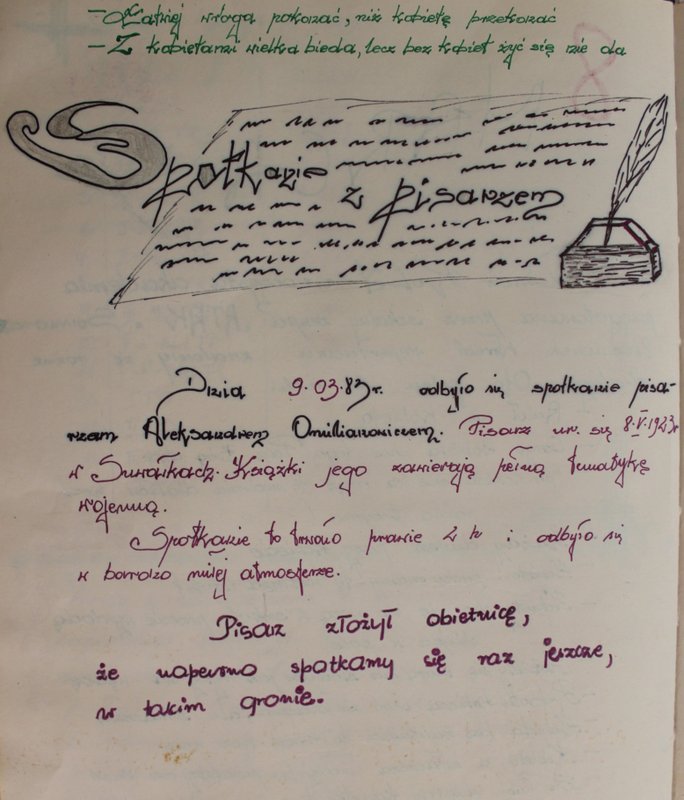 - Łatwiej wroga pokonać, niż kobietę przekonać
- Z kobietami wielka bieda, lecz bez kobiet żyć się nie da
Spotkanie z pisarzem
Dnia 9.03.83r. odbyło się spotkanie pisa-
rzem Aleksandrem Omilianowiczem. Pisarz ur. się 8.V.1923r
w Suwałkach. Książki jego zawierają pełną tematykę
wojenną.
Spotkanie to trwało prawie 2 h i odbyło się
w bardzo miłej atmosferze.
Pisarz złożył obietnicę,
że napewno spotkamy się raz jeszcze,
w takim gronie.